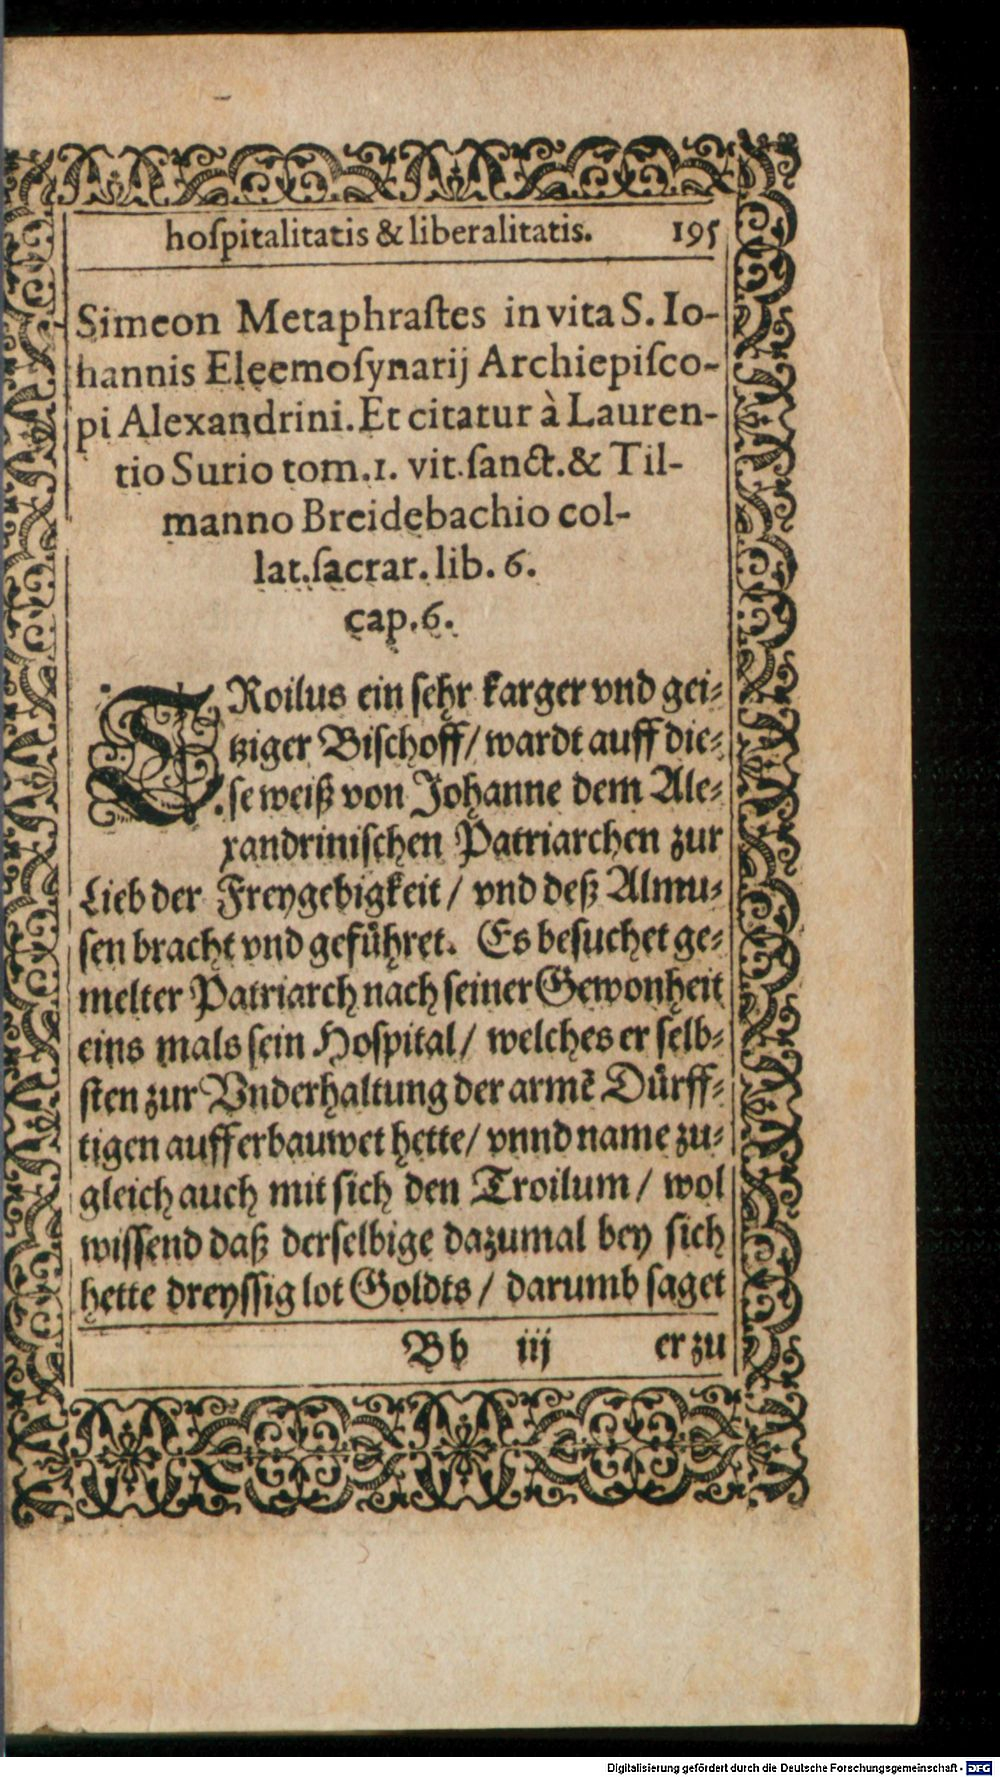 hoſpitalitatis & liberalitatis. 195
Simeon Metaphraſtes in vita S. Io-
hannis Eleemoſynarij Archiepiſco-
pi Alexandrini. Et citatur à Lauren-
tio Surio tom. 1. vit. ſanct. & Til-
manno Breidebachio col-
lat. ſacrar. lib. 6.
cap. 6.
TRoilus ein ſehr karger vnd gei-
tziger Biſchoff / wardt auff die-
ſe weiß von Johanne dem Ale-
xandriniſchen Patriarchen zur
Lieb der Freygebigkeit / vnd deß Almu-
ſen bracht vnd gefuͤhret. Es beſuchet ge-
melter Patriarch nach ſeiner Gewonheit
eins mals ſein Hoſpital / welches er ſelb-
ſten zur Vnderhaltung der armē Duͤrff-
tigen auff erbauwet hette / vnnd name zu-
gleich auch mit ſich den Troilum / wol
wiſſend daß derſelbige dazumal bey ſich
hette dreyſſig lot Goldts / darumb ſaget
Bb iij er zu
Digitalisierung gefördert durch die Deutsche Forschungsgemeinschaft - DFG